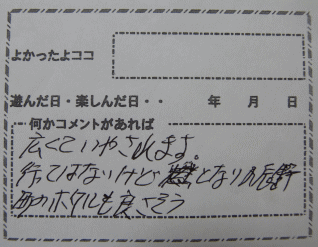 よかったよココ
遊んだ日・楽しんだ日・・ 年 月 日
何かコメントがあれば
広くていやされます。
行ってはないけど となりの辰野
町のホタルも良さそう